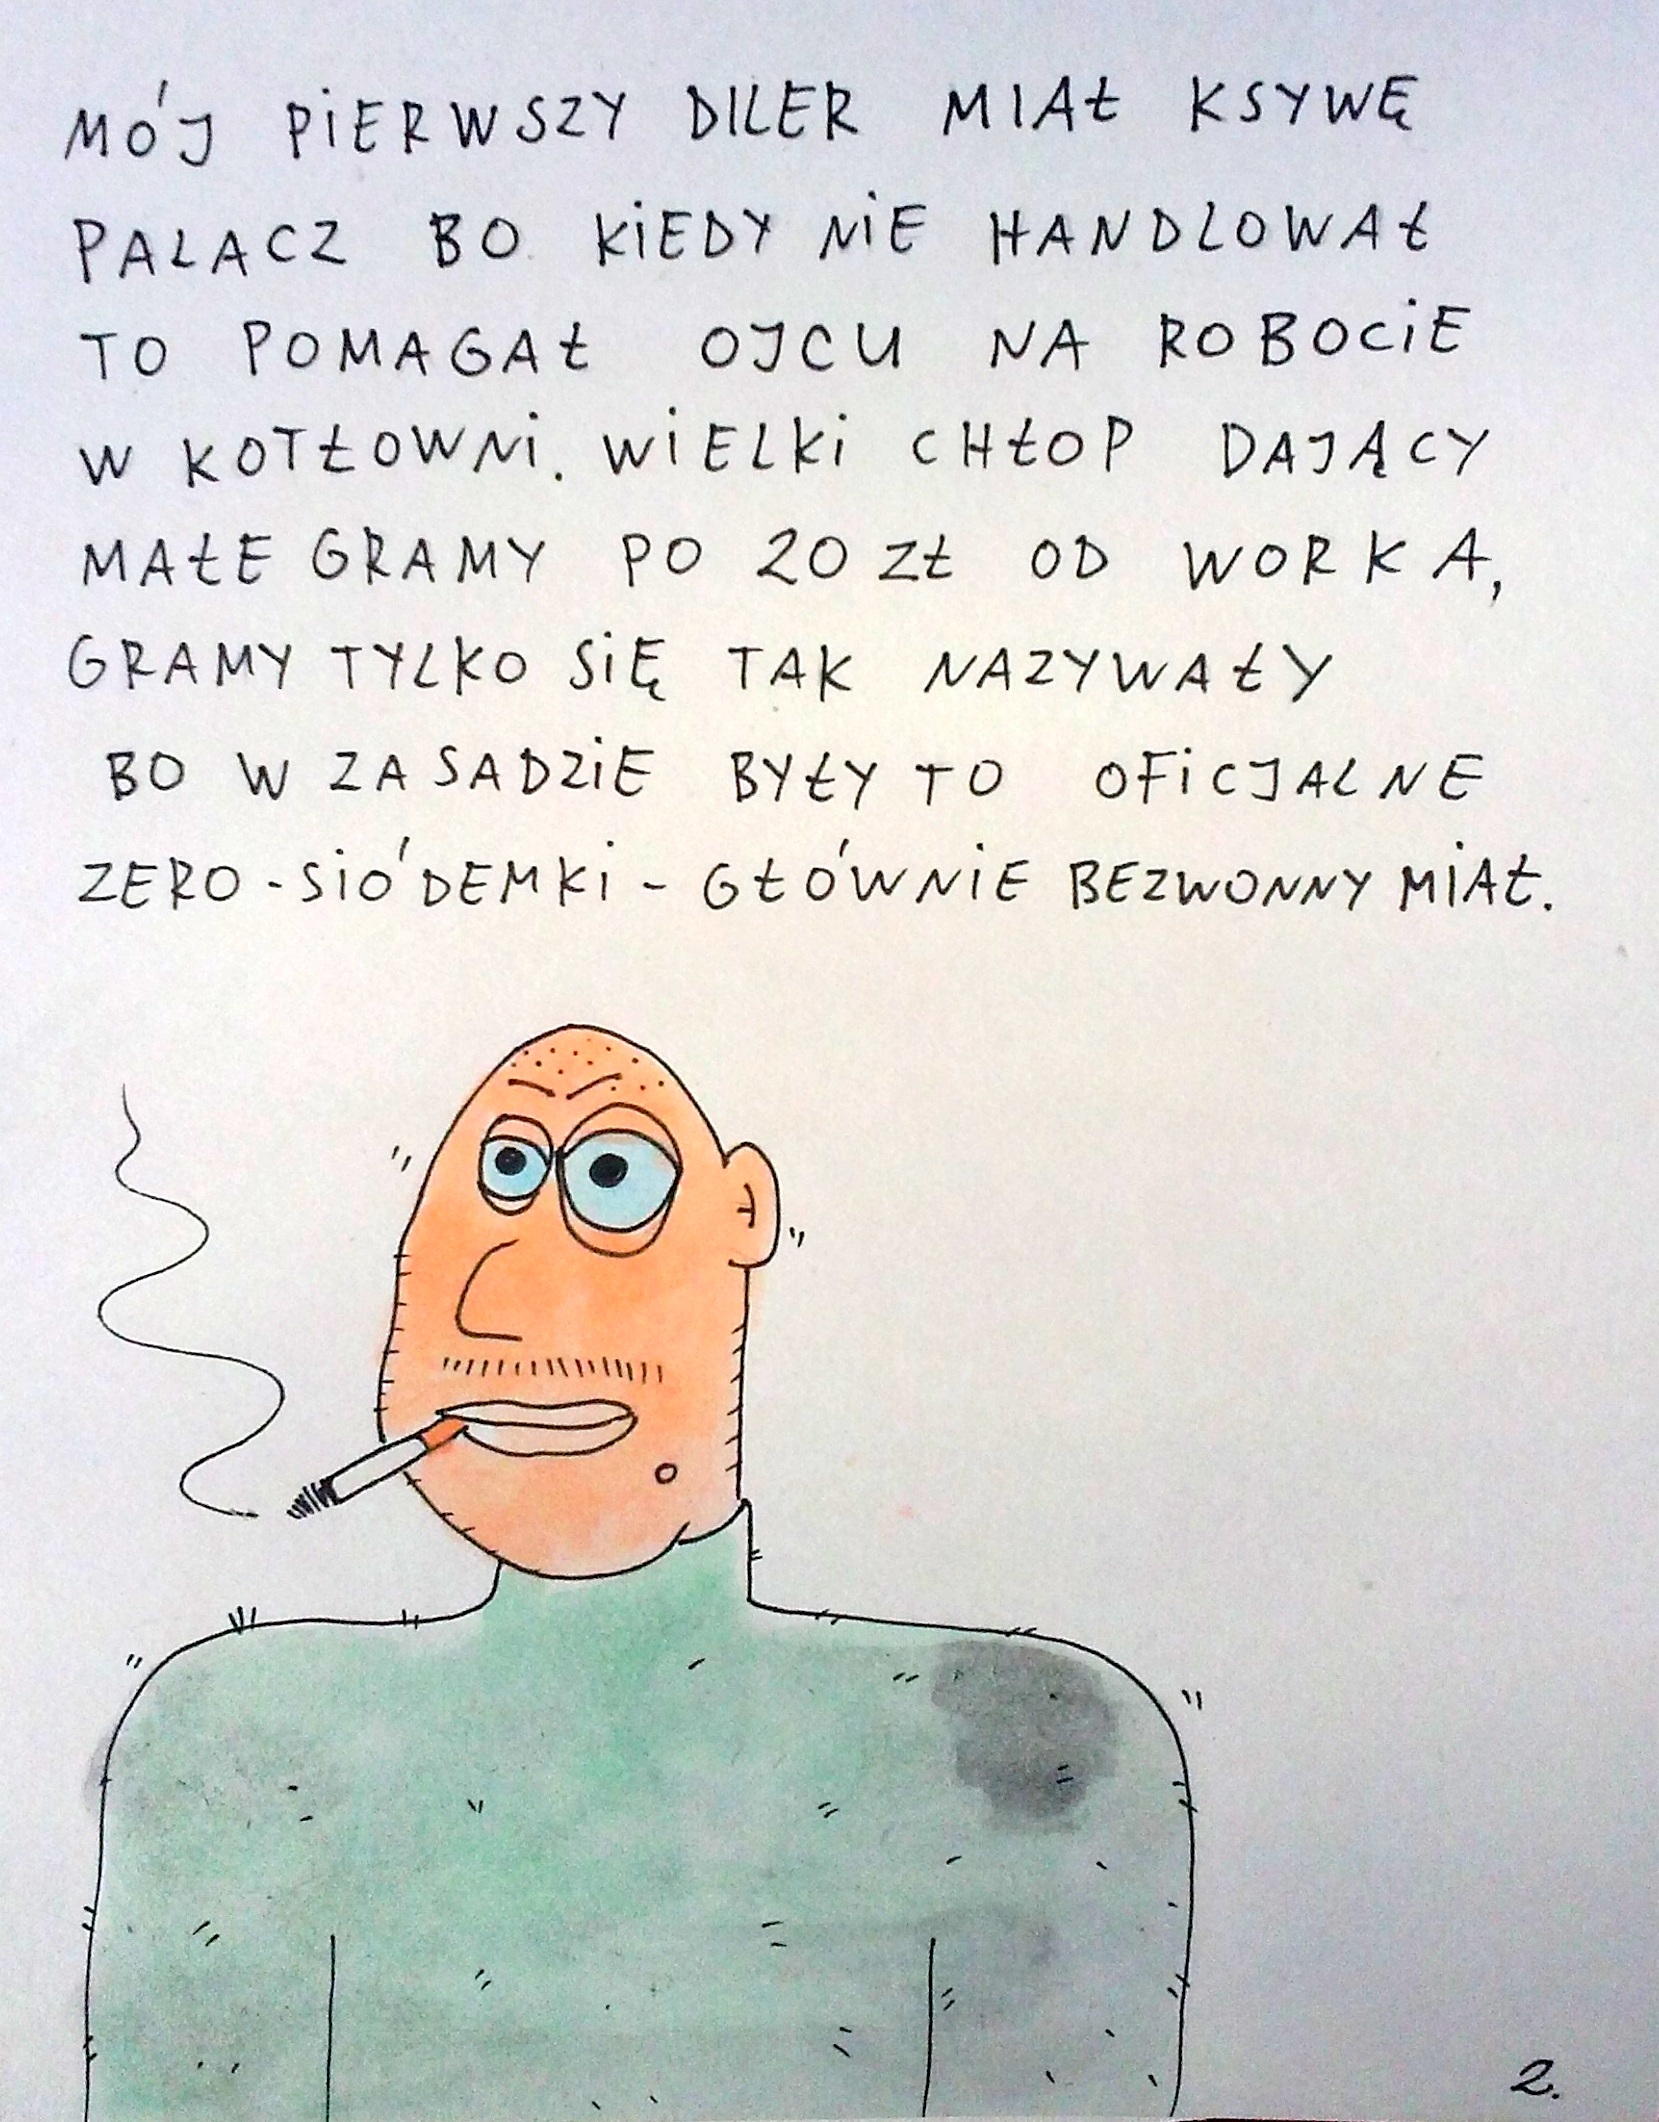 MÓJ PIERWSZY DILER MIAŁ KSYWĘ
PALACZ BO KIEDY NIE HANDLOWAŁ
TO POMAGAŁ OJCU NA ROBOCIE
W KOTŁOWNI. WIELKI CHŁOP DAJĄCY
MAŁE GRAMY PO 20 ZŁ OD WORKA,
GRAMY TYLKO SIĘ TAK NAZYWAŁY
BO W ZASADZIE BYŁY TO OFICJALNE
ZERO-SIÓDEMKI - GŁÓWNIE BEZWONNY MIAŁ.
2.